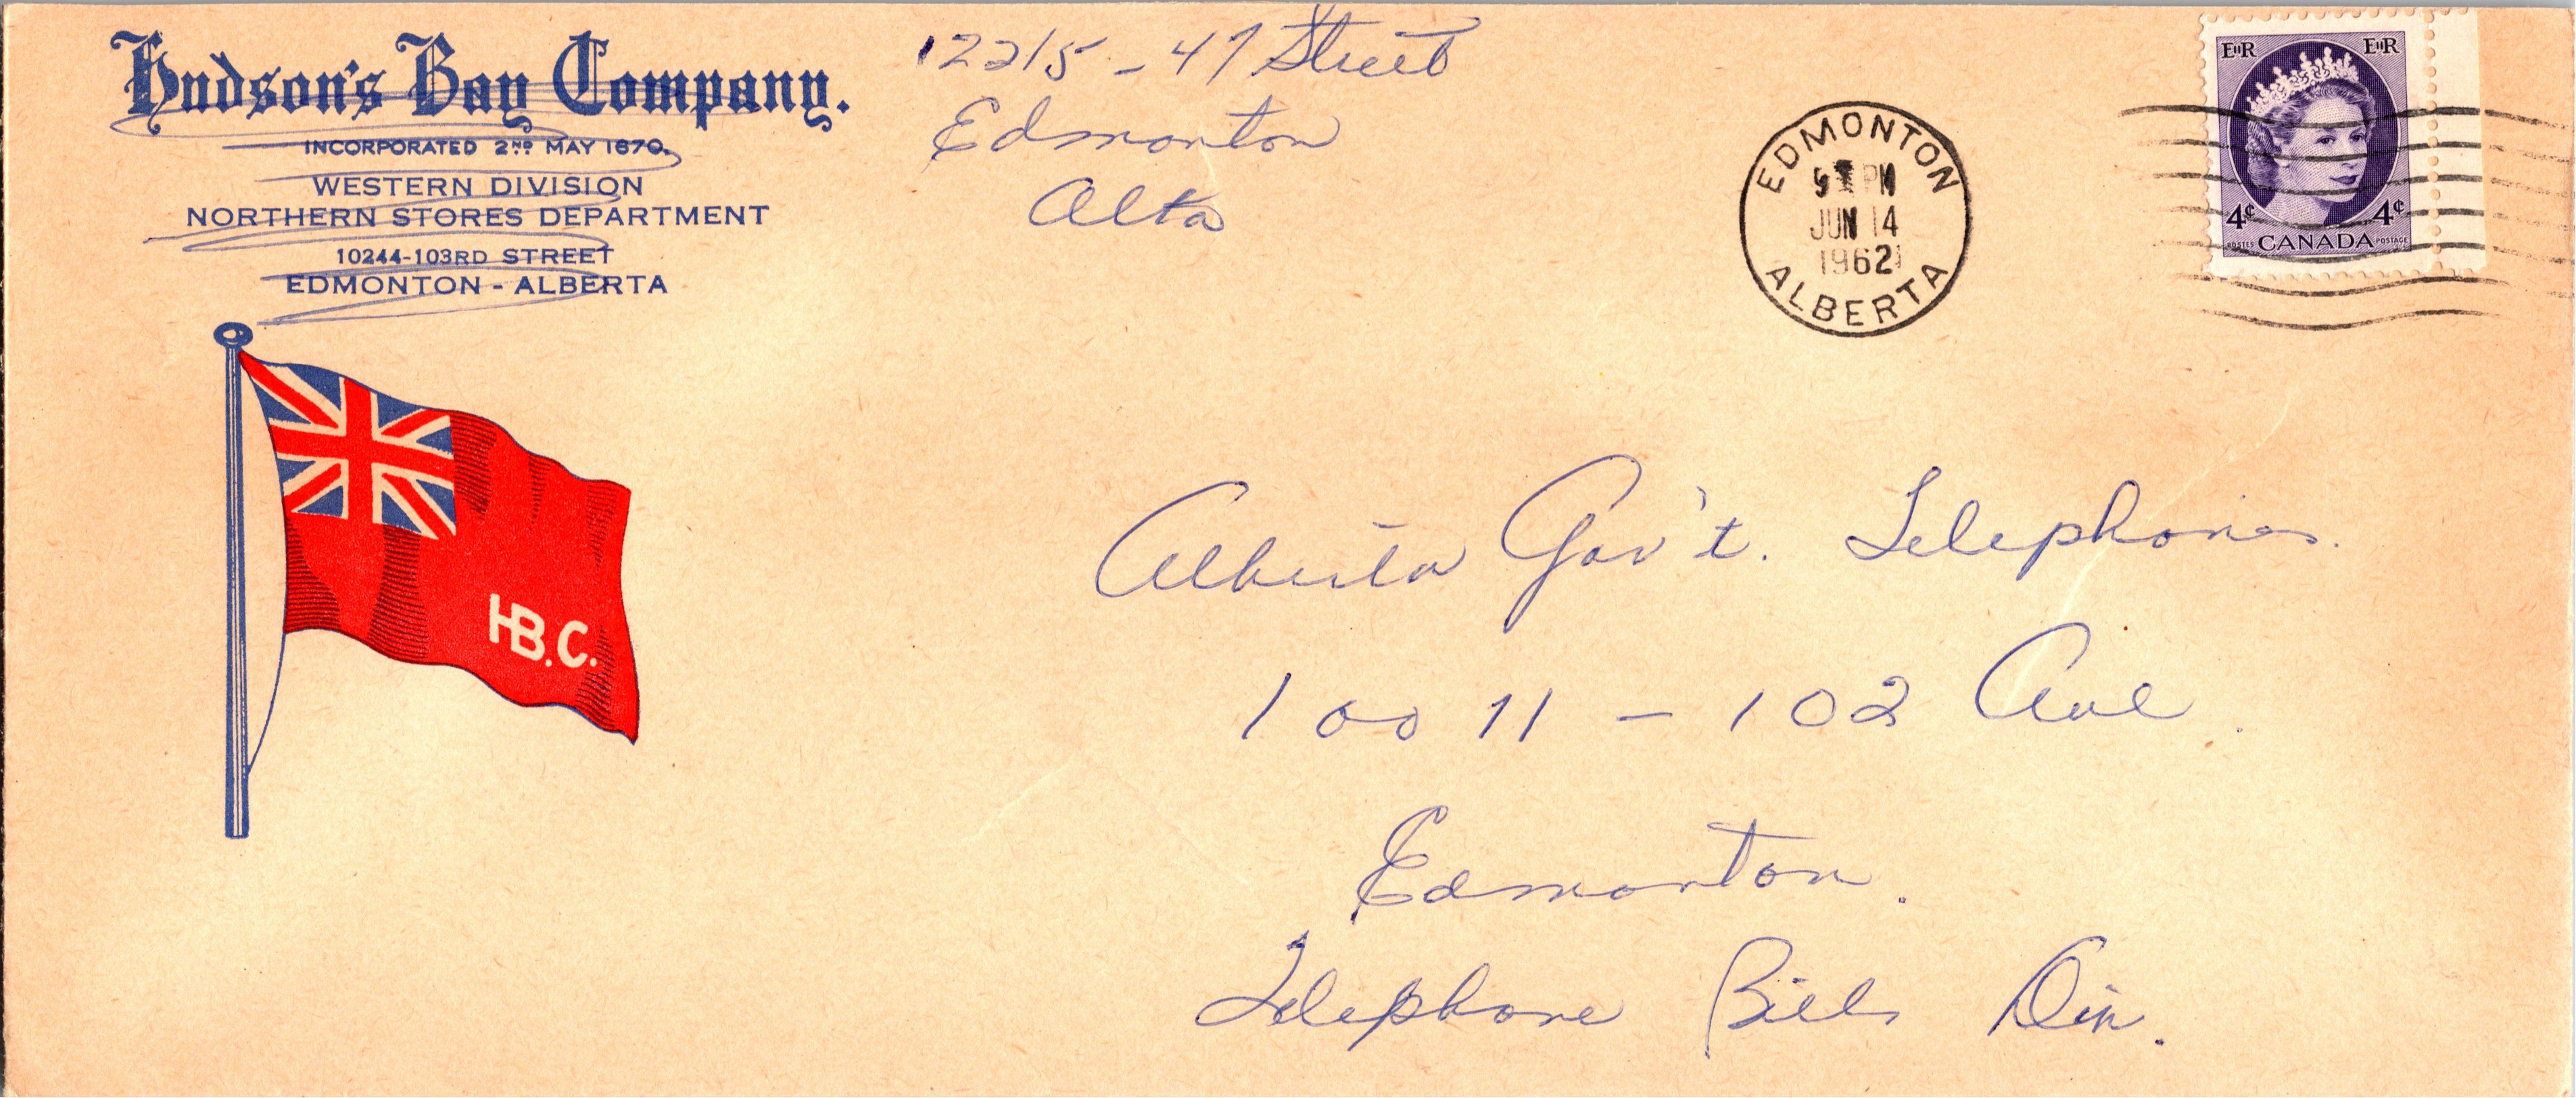 Hudson's Bay Company.
INCORPORATED 2ND MAY 1670.
WESTERN DIVISION
NORTHERN STORES DEPARTMENT
10244-103RD STREET
EDMONTON - ALBERTA
12215 - 47 Street
Edmonton
Alta
EDMONTON
PM
JUN 14
1962
ALBERTA
EIIR EIIR
4¢ 4¢
POSTES CANADA POSTAGE
H.B.C.
Alberta Gov't. Telephones.
10011 - 102 Ave.
Edmonton.
Telephone Bills Div.